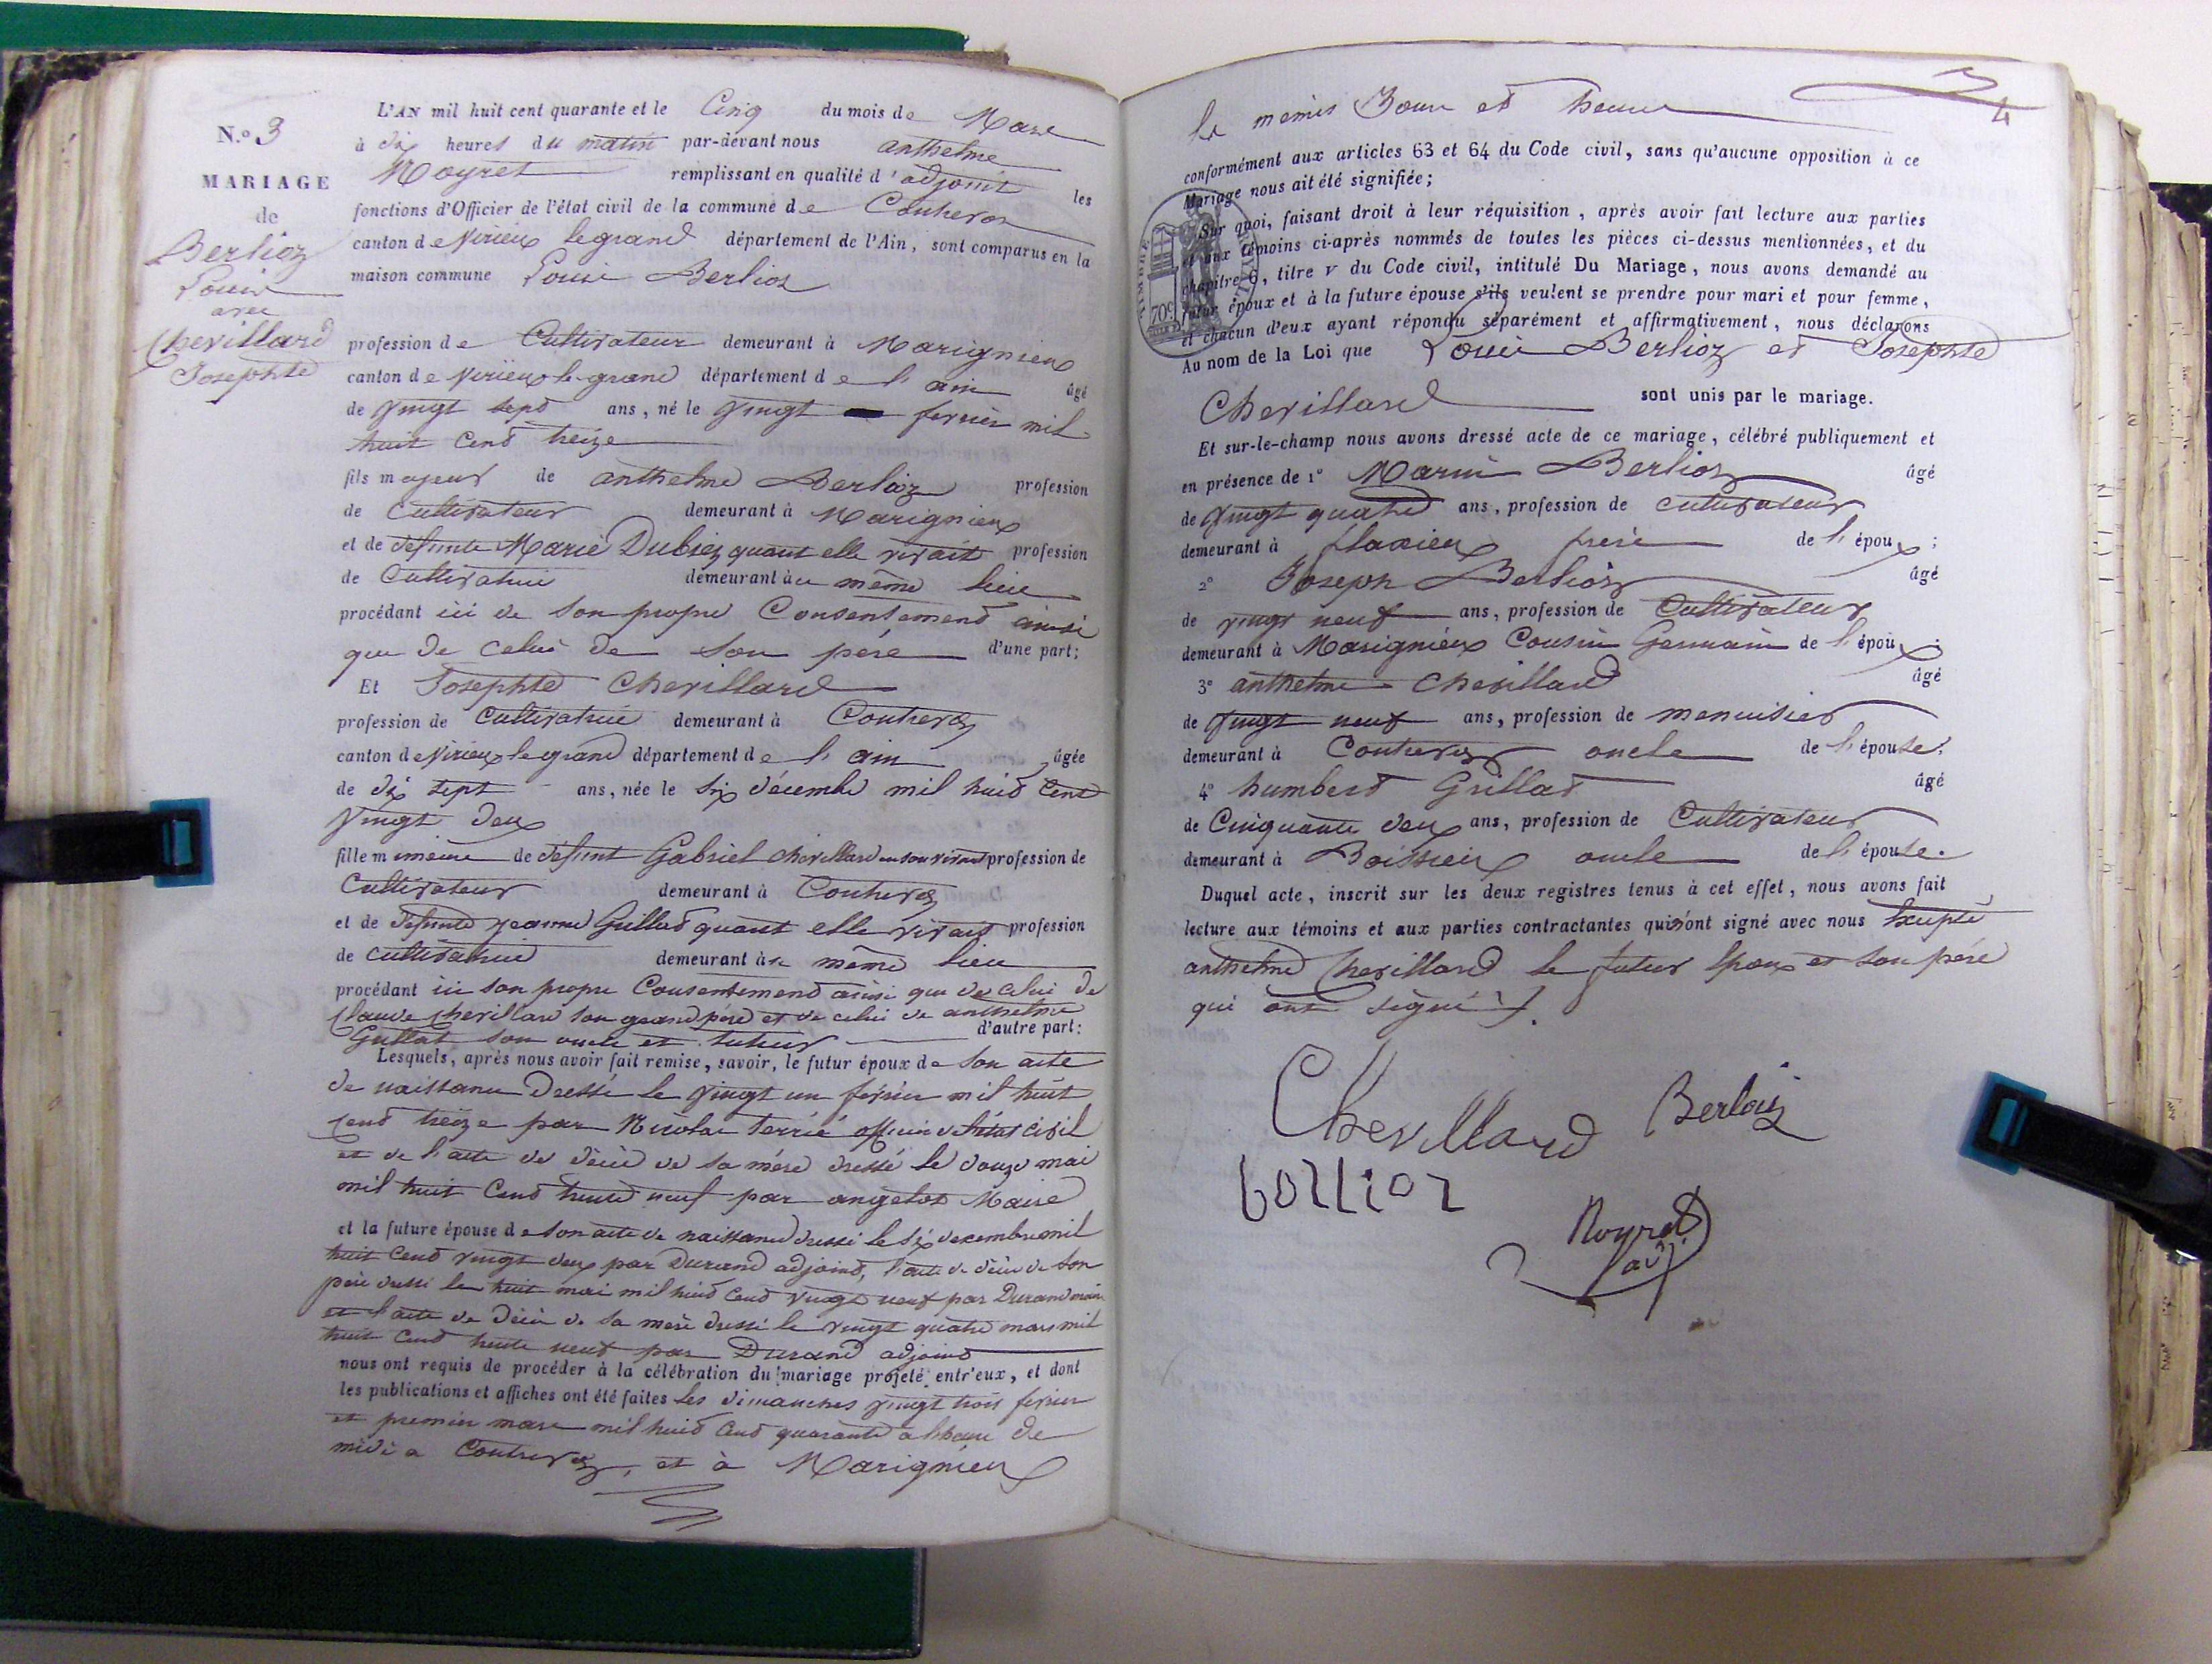 N.º 3
MARIAGE
de
Berlioz
Louis
avec
Chevillard
Josephte
L'AN mil huit cent quarante et le Cinq du mois de Mars
à dix heures du matin par-devant nous anthelme
Moyret remplissant en qualité d'adjoint les
fonctions d'Officier de l'état civil de la commune de Contrevoz
canton de Virieux legrand département de l'Ain, sont comparus en la
maison commune Louis Berlioz
profession de Cultivateur demeurant à Marignieux
canton de Virieux le grand département de l'ain âgé
de vingt sept ans, né le vingt fevrier mil
huit Cend treize
fils majeur de anthelme Berlioz profession
de Cultivateur demeurant à Marignieux
et de defunte Marie Dubiez quant elle vivait profession
de Cultivatrice demeurant au même lieu
procédant ici de son propre Consentement ainsi
que de celui de son père d'une part;
Et Josephte Chevillard
profession de Cultivatrice demeurant à Contrevoz
canton de Virieux le grand département de l'ain âgée
de dix sept ans, née le six décembre mil huid Cent
vingt deux
fille mineure de défunt Gabriel Chevillard en son vivant profession de
Cultivateur demeurant à Contrevoz
et de defunte jeanne Grillat quant elle vivait profession
de cultivatrice demeurant au même lieu
procédant ici son propre Consentement ainsi que de celui de
Claude Chevillard son grand pere et de celui de anthelme
Grillat son oncle et tuteur d'autre part:
Lesquels, après nous avoir fait remise, savoir, le futur époux de son acte
de naissance Dressé le vingt un février mil huit
Cend treize par Nicolas terrié officier de l'état civil
et de l'acte de décès de sa mère dressé le douze mai
mil huit Cend trente neuf par angelot Maire
et la future épouse de son acte de naissance dressé le six decembre mil
huit Cend vingt deux par Durand adjoint, l'acte de décès de son
père dressé le huit mai mil huid Cend vingt neuf par Durand maire
et l'acte de décès de sa mère dressé le vingt quatre mars mil
huit Cend trente neuf par Durand adjoint
nous ont requis de procéder à la célébration du mariage projeté entr'eux, et dont
les publications et affiches ont été faites les dimanches vingt trois fevrier
et premier mars mil huid Cend quarante a lheure de
midi a Contrevoz, et à Marignieux
4
les mêmes Jour et heure
conformément aux articles 63 et 64 du Code civil, sans qu'aucune opposition à ce
Mariage nous ait été signifiée;
Sur quoi, faisant droit à leur réquisition, après avoir fait lecture aux parties
et aux témoins ci-après nommés de toutes les pièces ci-dessus mentionnées, et du
chapitre 6, titre V du Code civil, intitulé Du Mariage, nous avons demandé au
futur époux et à la future épouse s'ils veulent se prendre pour mari et pour femme,
et chacun d'eux ayant répondu séparément et affirmativement, nous déclarons
Au nom de la Loi que Louis Berlioz et Josephte
Chevillard sont unis par le mariage.
TIMBRE
70c
Et sur-le-champ nous avons dressé acte de ce mariage, célébré publiquement et
en présence de 1º Marin Berlioz âgé
de vingt quatre ans, profession de cultivateur
demeurant à flaxieux frere de l'époux;
2º Joseph Berlioz âgé
de vingt neuf ans, profession de Cultivateur
demeurant à Marignieux Cousin Germain de l'époux;
3º anthelme Chevillard âgé
de vingt neuf ans, profession de menuisier
demeurant à Contrevoz oncle de l'épouse;
4º humbert Grillat âgé
de Cinquante deux ans, profession de Cultivateur
demeurant à Boissieu oncle de l'épouse.
Duquel acte, inscrit sur les deux registres tenus à cet effet, nous avons fait
lecture aux témoins et aux parties contractantes qui n'ont signé avec nous Excepté
anthelme Chevillard le futur Epoux et son père
qui ont signé.
Chevillard Berlioz
bollioz
Moyret
adj